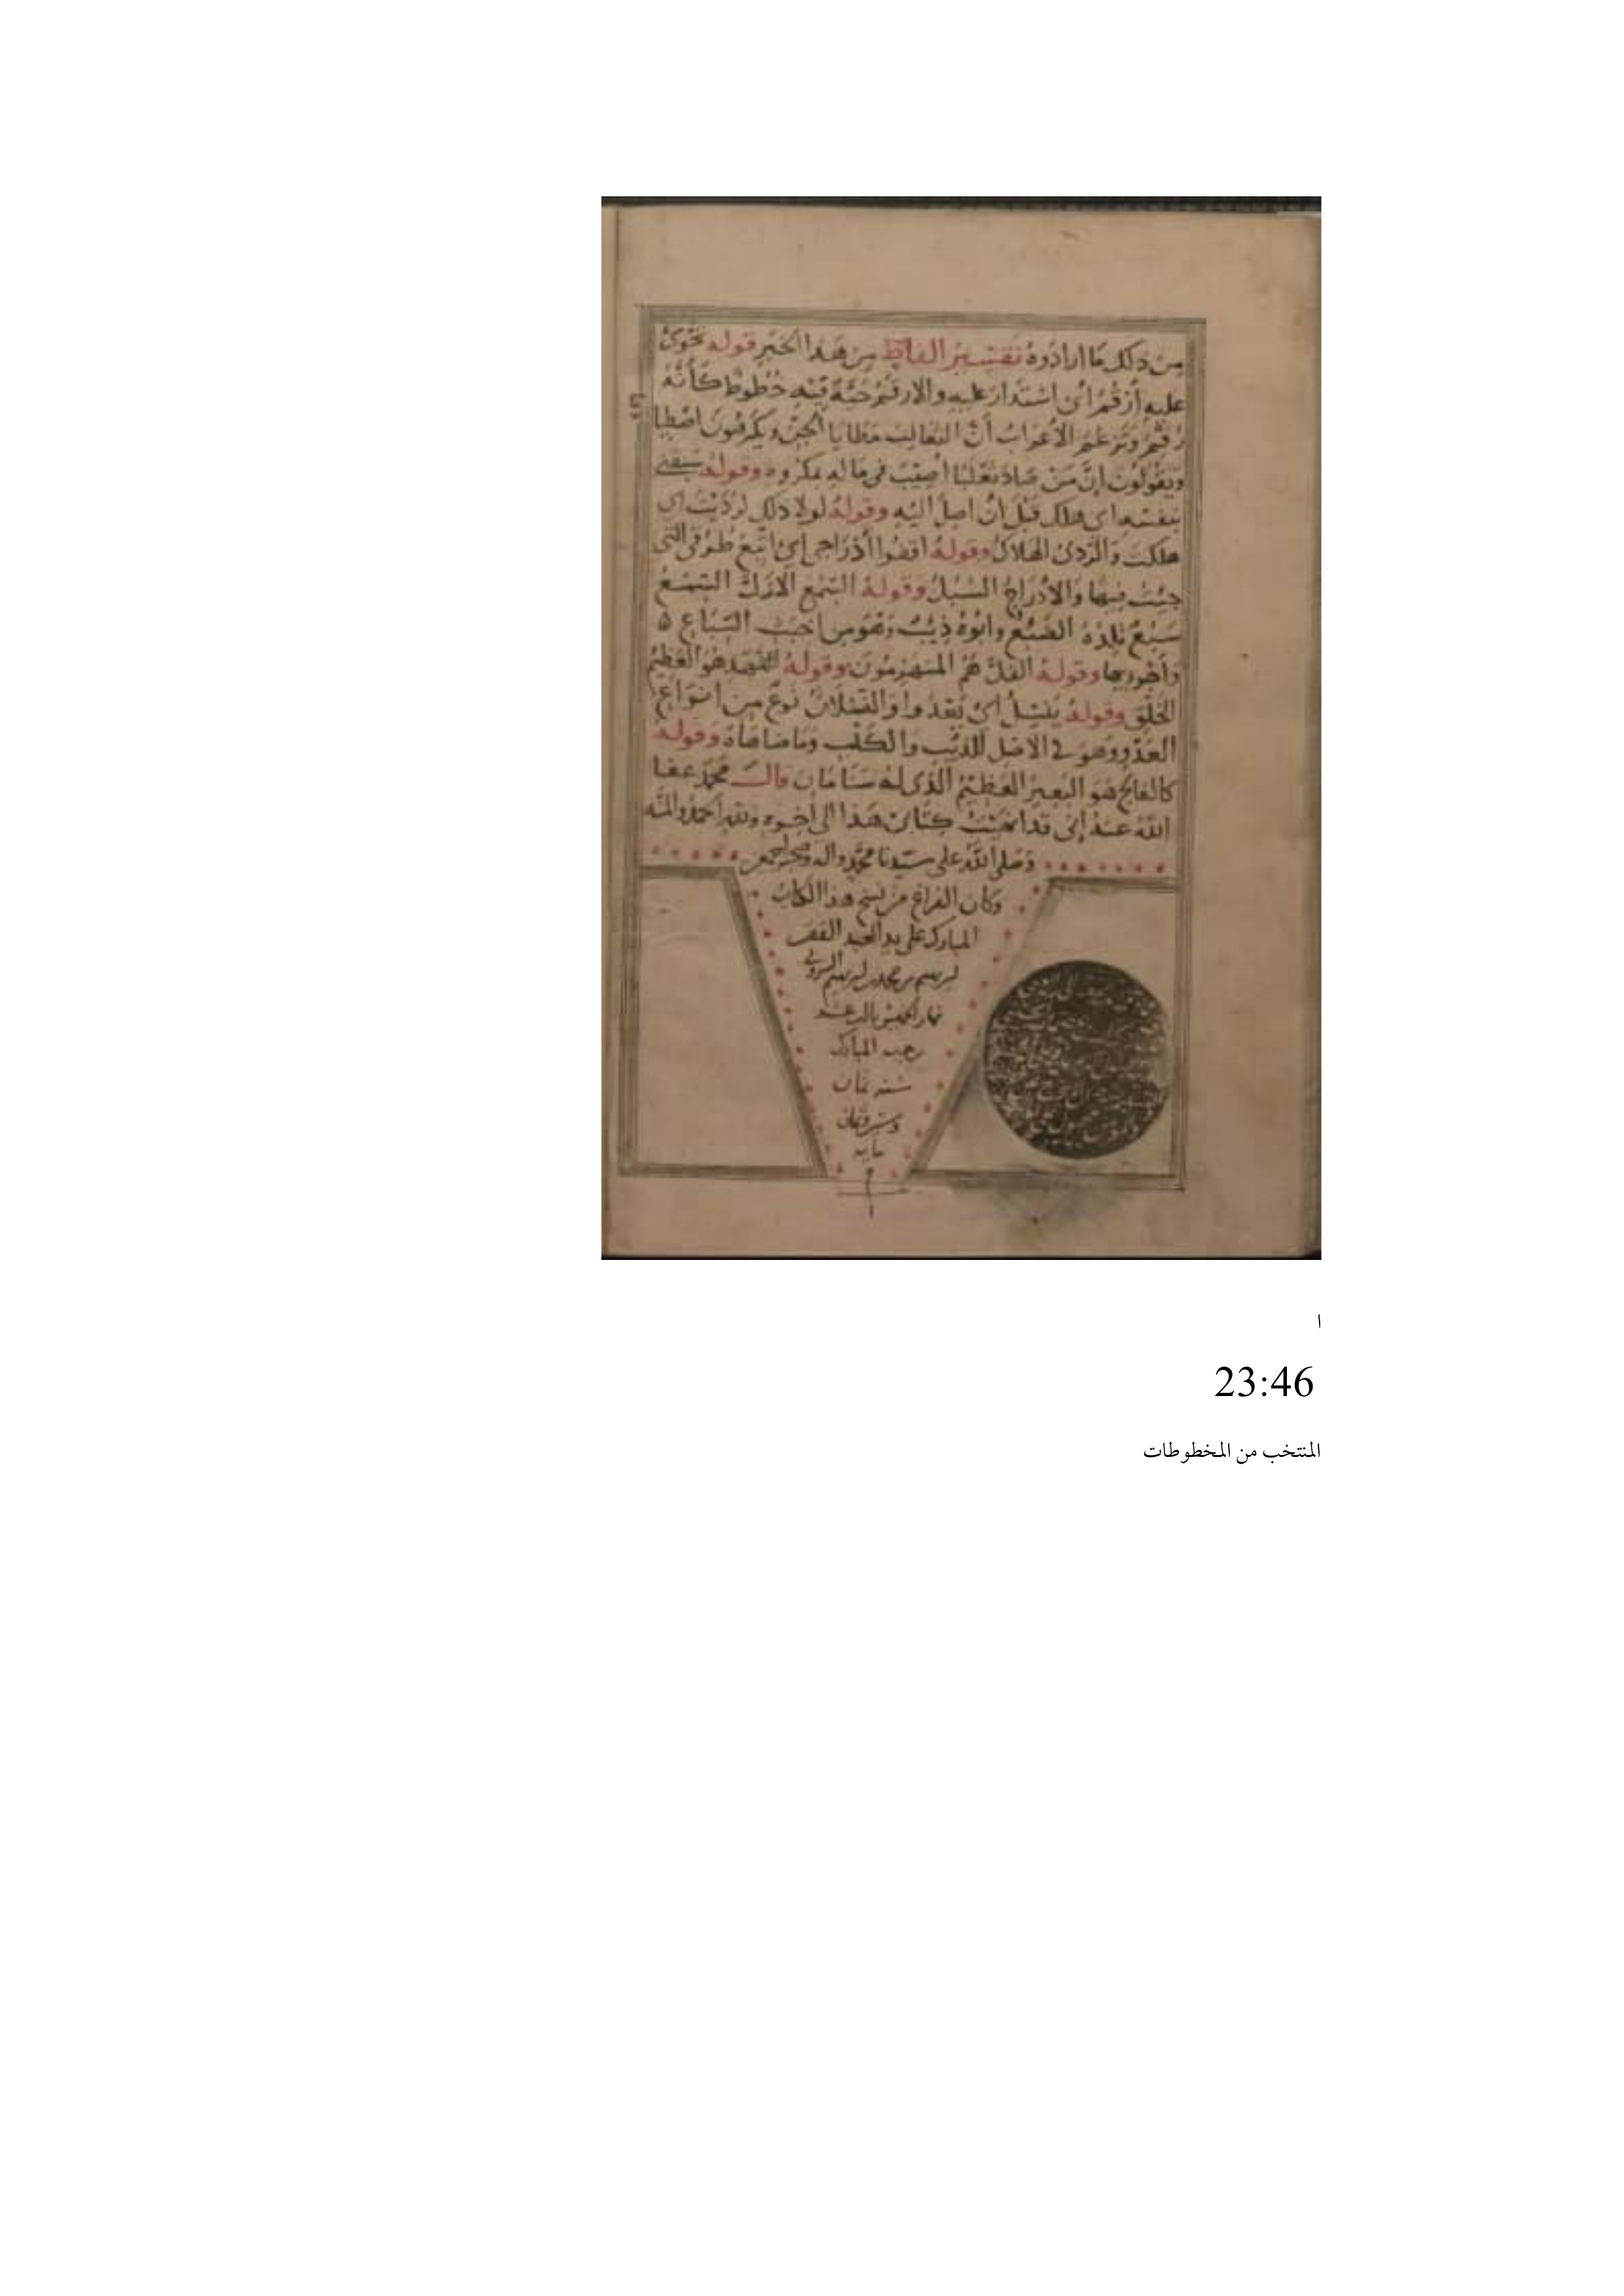 من ذلك ما ارادوه تفسير الفاظ من هذا الخبر قوله تحوى
عليه أرقم اى استدار عليه والارقم حية فيه خطوط كأنه
رقم وتزعم الأعراب أن الثعالب مطايا الجن ويكرهون اصطيا
ويقولون إن من صاد ثعلبا أصيب فى ماله بمكروه وقوله سبقنى
بنفسه اى هلك قبل أن اصل اليه وقوله لولا ذلك لرديت اى
هلكت والردى الهلاك وقوله اقفوا أدراجى اى اتبع طرقى التى
جئت فيها والادراج السبل وقوله السمع الازل السمع
سبع تلده الضبع وابوه ذيب وهو من اخبث السباع ٥
وقوله الفل هم المنهزمون وقوله هو العظيم
الخلق وقوله ينسل اى يعدوا والنسلان نوع من انواع
العدو وهو فى الاصل للذيب والكلب وما ضاهاه وقوله
كالفالج هو البعير العظيم الذى له سنامان قال محمد عفا
الله عنه إنى قد انهيت كتابى هذا الى اخره ولله الحمد والمنه
وصلى الله على سيدنا محمد واله وصحبه اجمعين
وكان الفراغ من نسخ هذا الكتاب
المبارك على يد العبد الفقير
نهار الخميس
رجب المبارك
سنة ثمان
وثمان
مايه
ا
23:46
المنتخب من المخطوطات